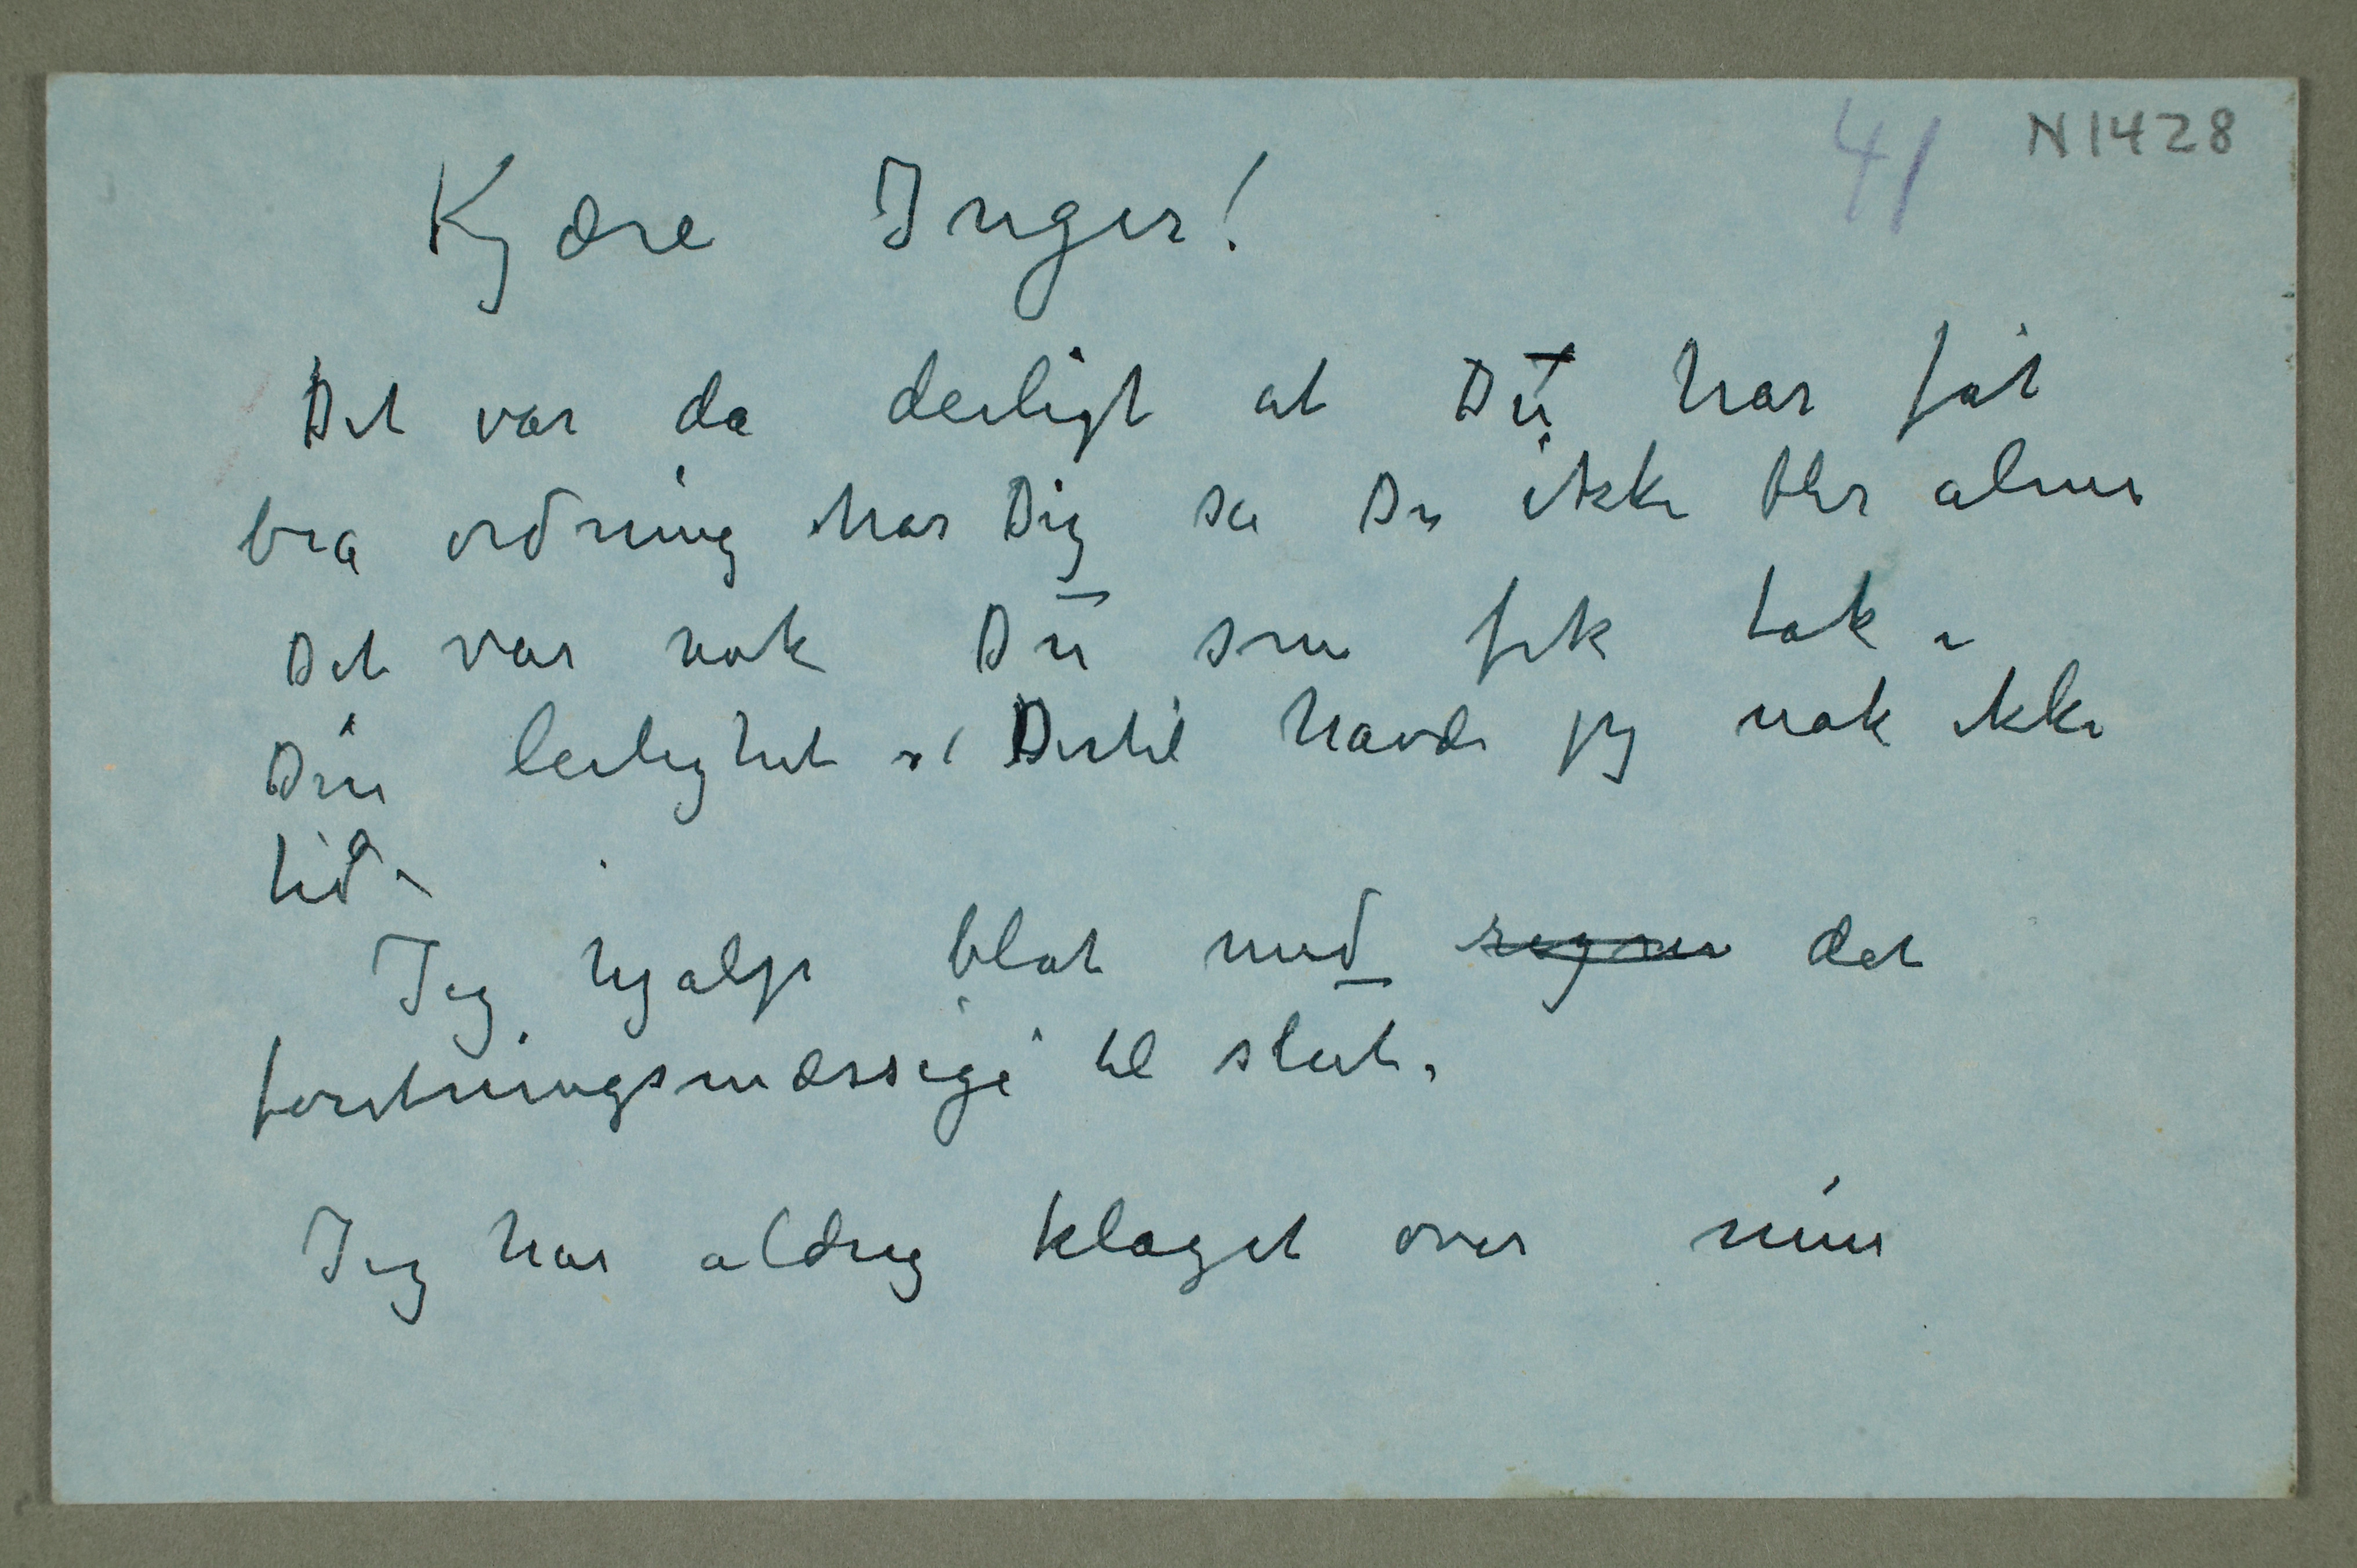 41 N1428
Kjære Inger!
Det var da deiligt at Du har fåt
bra ordning hos Dig så Du ikke blir alene
Det var nok Du som fik tak i
Din leilighet – Dertil havde jeg nok ikke
tid –
Jeg hjalp blot med regnin det
foretningsmæssige til slut.
Jeg har aldrig klaget over min